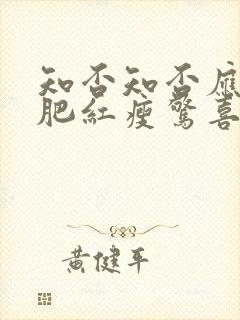 知否知否應
肥紅瘦驚喜
黃健平